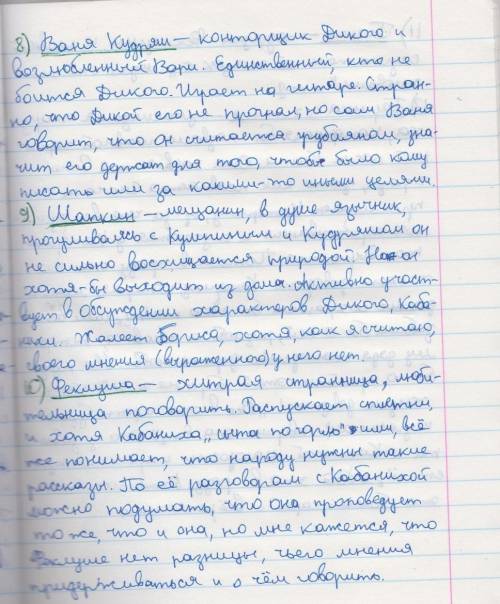 8) Ваня Кудряш – конторщик Дикого и
возлюбленный Вари. Единственный, кто не
боится Дикого. Играет на гитаре. Стран-
но, что Дикой его не прогнал, но сам Ваня
говорит, что он считается грубияном, зна-
чит его держат для того, чтобы было кому
писать или за какими-то иными целями.
9) Шапкин – мещанин, в душе язычник,
прогуливаясь с Кулигиным и Кудряшом он
не сильно восхищается природой. Но он
хотя-бы выходит из дома. Активно участ-
вует в обсуждении характеров Дикого, Каба-
нихи. Жалеет Бориса, хотя, как я считаю,
своего мнения (выраженного) у него нет.
10) Феклуша – хитрая странница, люби-
тельница поговорить. Распускает сплетни,
и хотя Кабаниха „сыта по горло" ими, всё
же понимает, что народу нужны такие
рассказы. По её разговорам с Кабанихой
можно подумать, что она проповедует
то же, что и она, но мне кажется, что
Феклуше нет разницы, чьего мнения
придерживаться и о чём говорить.